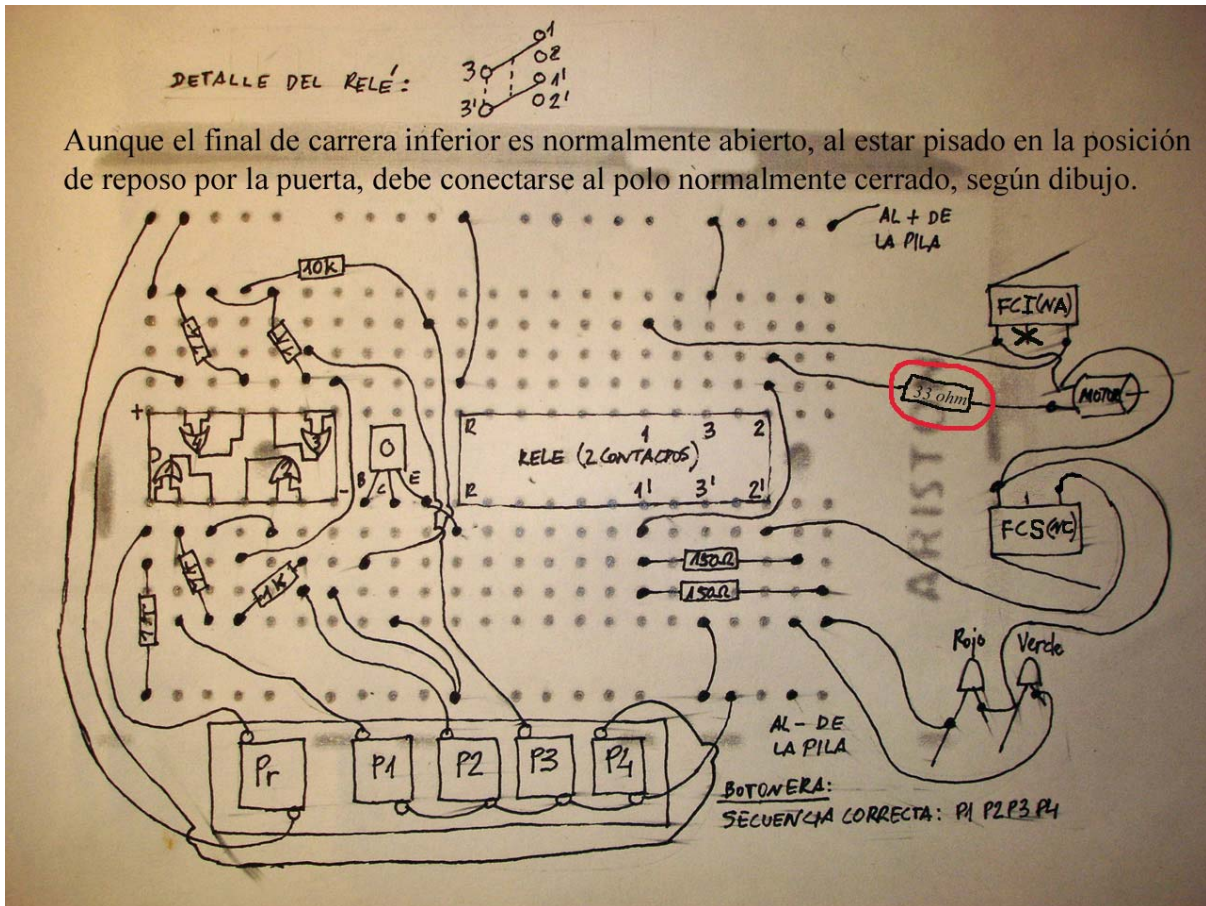 DETALLE DEL RELÉ:
1
2
3
1'
2'
3'
Aunque el final de carrera inferior es normalmente abierto, al estar pisado en la posición
de reposo por la puerta, debe conectarse al polo normalmente cerrado, según dibujo.
AL + DE
LA PILA
10K
FCI(NA)
1K
1K
33 ohm
MOTOR
ARISTO
+
-
1
2
3
B
C
E
R
1
3
2
RELE (2 CONTACTOS)
R
1'
3'
2'
FCS(NC)
150Ω
150Ω
1K
1K
1K
Rojo
Verde
AL - DE
LA PILA
Pr
P1
P2
P3
P4
BOTONERA:
SECUENCIA CORRECTA: P1 P2 P3 P4